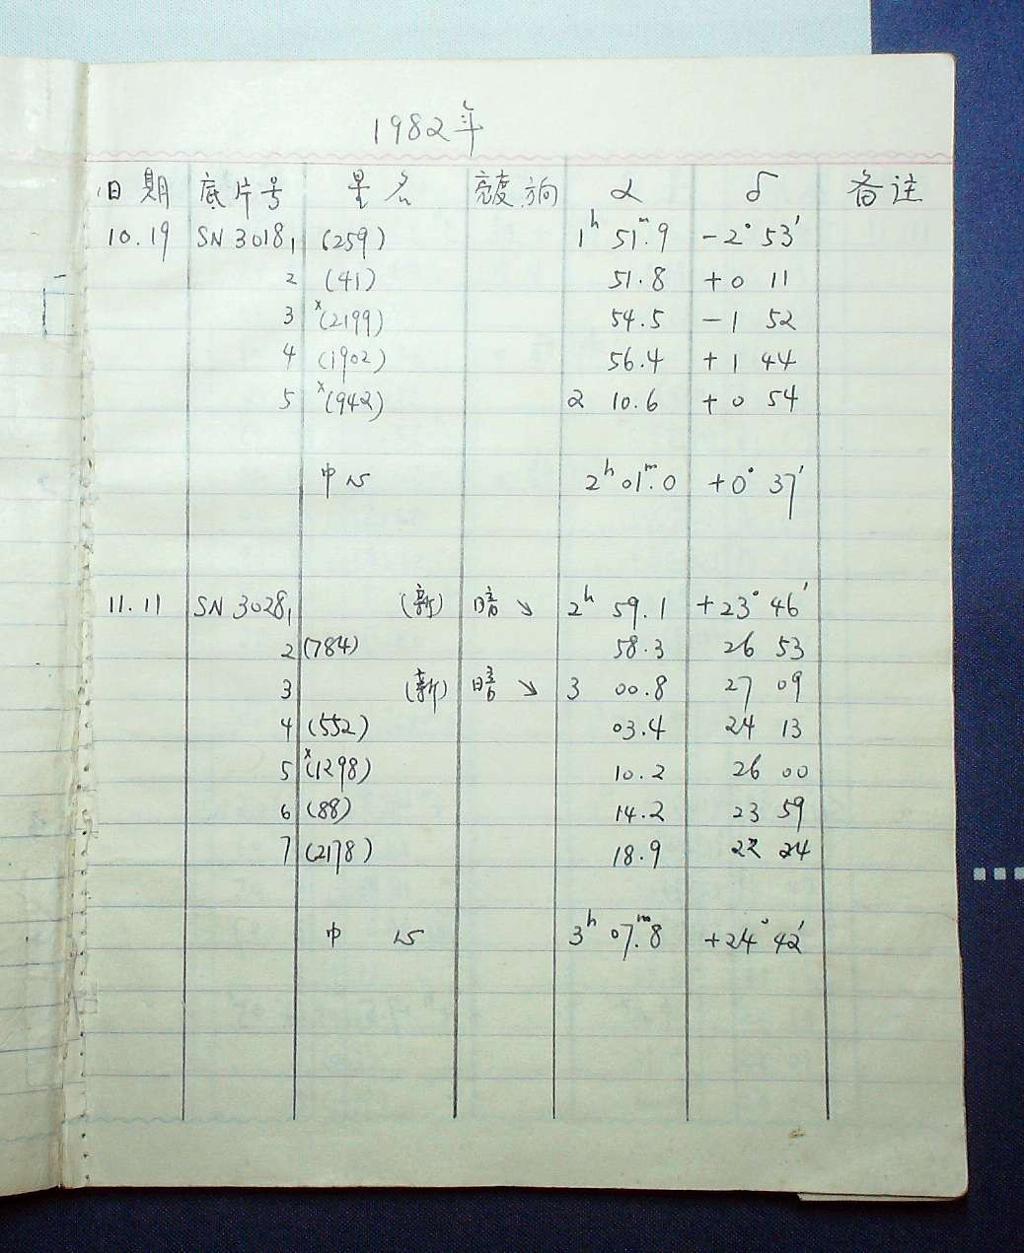 1982年
日期 底片号 星名 亮度.方向 α δ 备注
10.19 SN 3018₁ (259) 1ʰ 51ᵐ.9 -2° 53′
2 (41) 51.8 +0 11
3 ˣ(2199) 54.5 -1 52
4 (1902) 56.4 +1 44
5 ˣ(942) 2 10.6 +0 54
中心 2ʰ 01ᵐ.0 +0° 37′
11.11 SN 3028₁ (新) 暗 ↘ 2ʰ 59.1 +23° 46′
2 (784) 58.3 26 53
3 (新) 暗 ↘ 3 00.8 27 09
4 (552) 03.4 24 13
5 ˣ(1298) 10.2 26 00
6 (88) 14.2 23 59
7 (2178) 18.9 22 24
中心 3ʰ 07ᵐ.8 +24° 42′